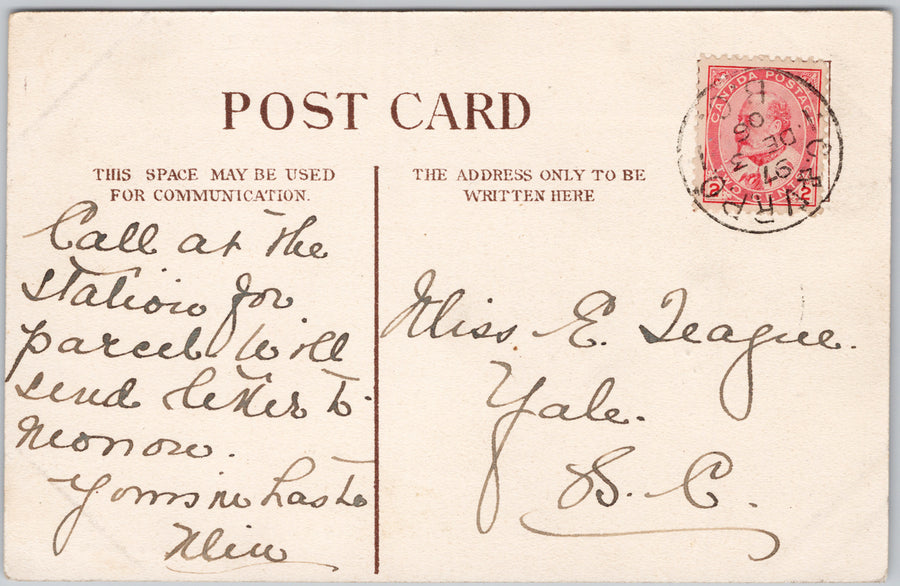 POST CARD
THIS SPACE MAY BE USED
FOR COMMUNICATION.
THE ADDRESS ONLY TO BE
WRITTEN HERE
CANADA POSTAGE
2 TWO CENTS 2
DE 3
06
Call at the
station for
parcel Will
send letter to
morrow.
Yours in haste
Miss E. Teague.
Yale.
B. C.